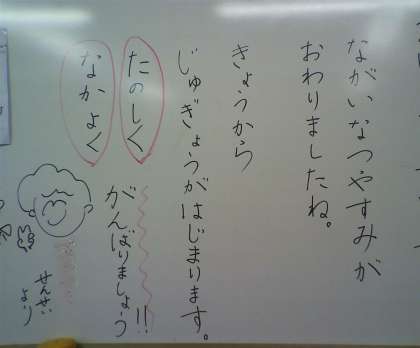 ながいなつやすみが
おわりましたね。
きょうから
じゅぎょうがはじまります。
たのしく
なかよく
がんばりましょう!!
せんせい
より